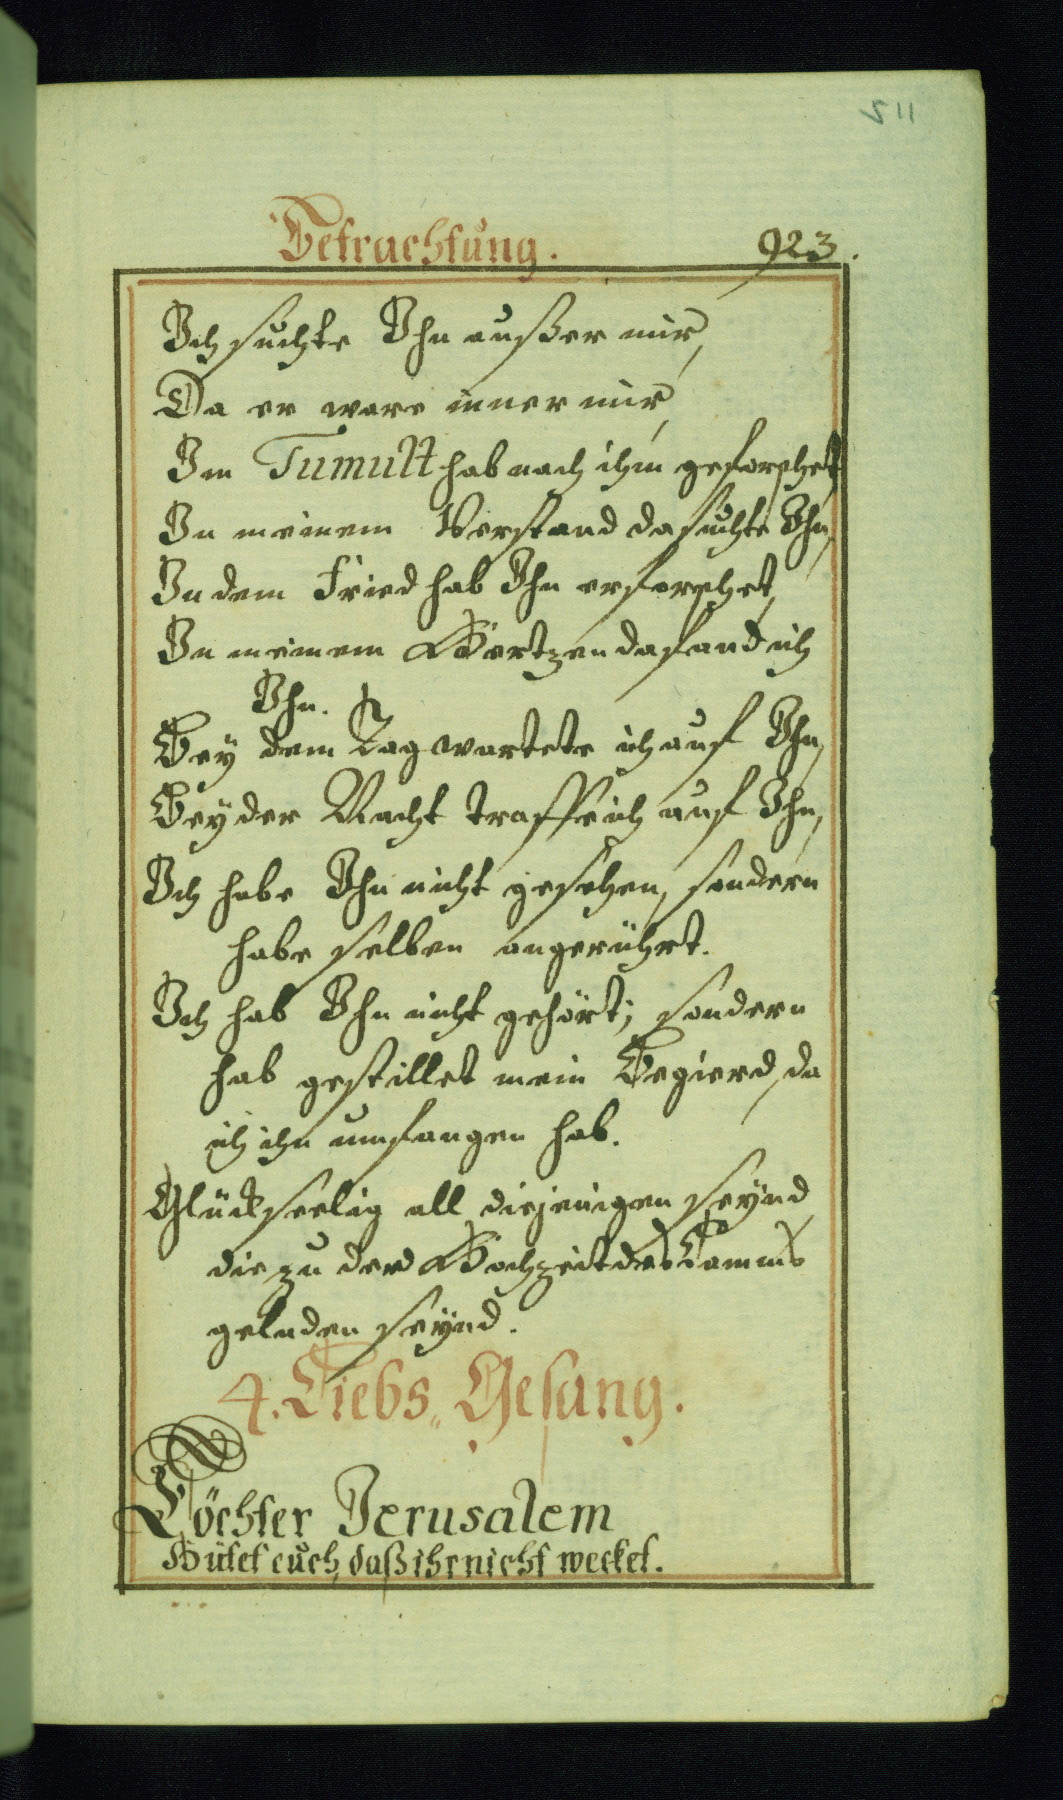 511
Betrachtung. 923.
Ich suchte Ihn außer mir,
Da er ware inner mir,
Im Tumult hab nach ihm geforschet,
In meinem Verstand da suchte Ihn,
In dem Fried hab Ihn erforschet,
In meinem Hertzen da fand ich
Ihn.
Bey dem Tag wartete ich auf Ihn,
Bey der Nacht traffe ich auf Ihn,
Ich habe Ihn nicht gesehen, sondern
habe selben angerührt.
Ich hab Ihn nicht gehört; sondern
hab gestillet mein Begierd, da
ich ihn umfangen hab.
Glückseelig all diejenigen seynd
die zu der Hochzeit des Lamms
geladen seynd.
4. Liebs„ Gesang.
Töchter Jerusalem
Hütet euch, daß ihr nicht wecket.